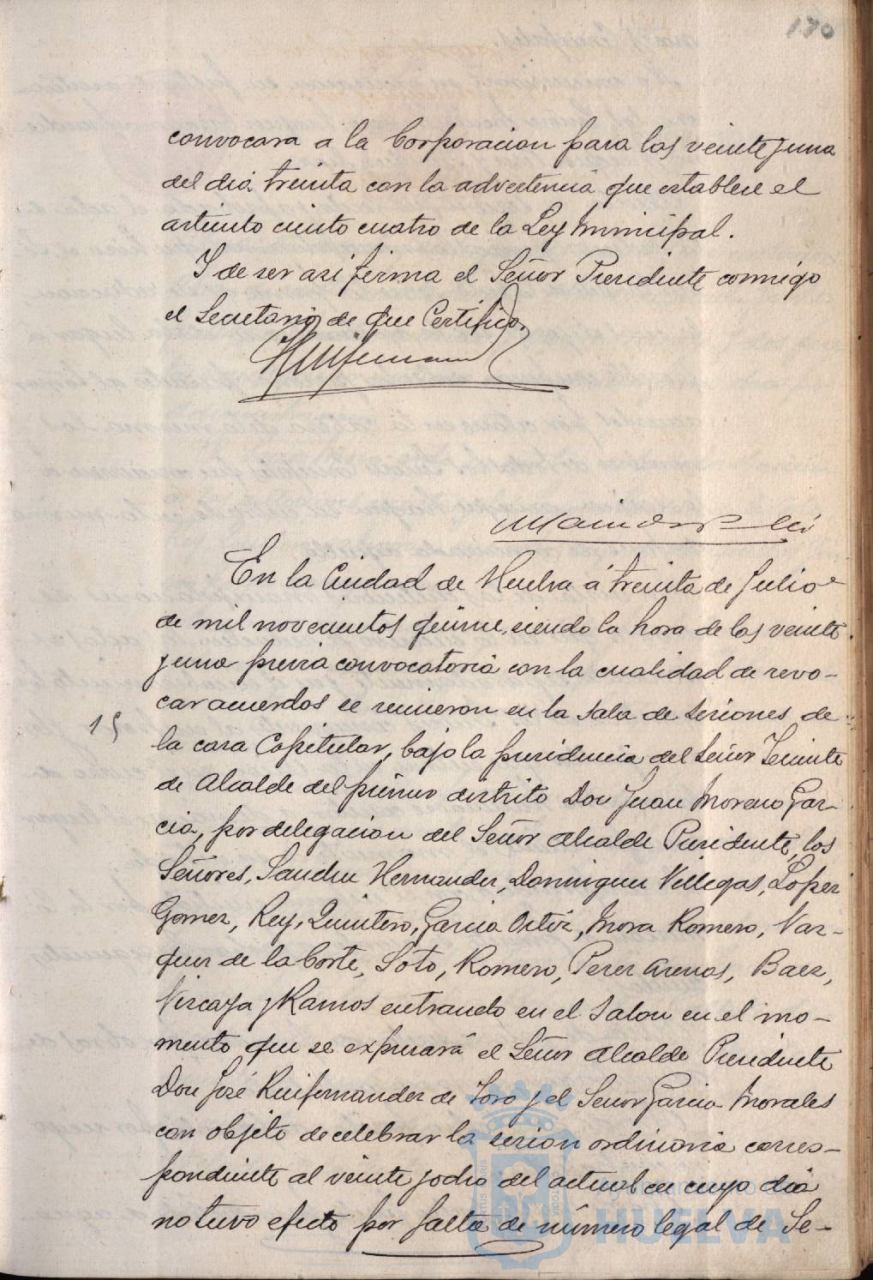 170
convocara a la Corporacion para las veinte y una
del dia treinta con la advertencia que establece el
articulo ciento cuatro de la Ley Municipal.
Y de ser asi firma el Señor Presidente conmigo
el Secretario de que Certifico.
En la Ciudad de Huelva á treinta de Julio
de mil novecientos quince, siendo la hora de las veinte
y una previa convocatoria con la cualidad de revo-
car acuerdos se reunieron en la sala de sesiones de
15
la casa Capitular, bajo la presidencia del Señor Teniente
de Alcalde del primer distrito Don Juan Moreno Gar-
cia, por delegacion del Señor Alcalde Presidente, los
Señores, Sanchez Hernandez, Dominguez Villegas, Lopez
Gomez, Rey, Quintero, Garcia Ortiz, Mora Romero, Vaz-
quez de la Corte, Soto, Romero, Perez Arenas, Baez,
Vizcaya y Ramos entrando en el Salon en el mo-
mento que se expresará el Señor Alcalde Presidente
Don José Ruifernandez de Toro y el Señor Garcia Morales
con objeto de celebrar la sesion ordinaria corres-
pondiente al veinte y ocho del actual en cuyo dia
no tuvo efecto por falta de número legal de Se-
HUELVA